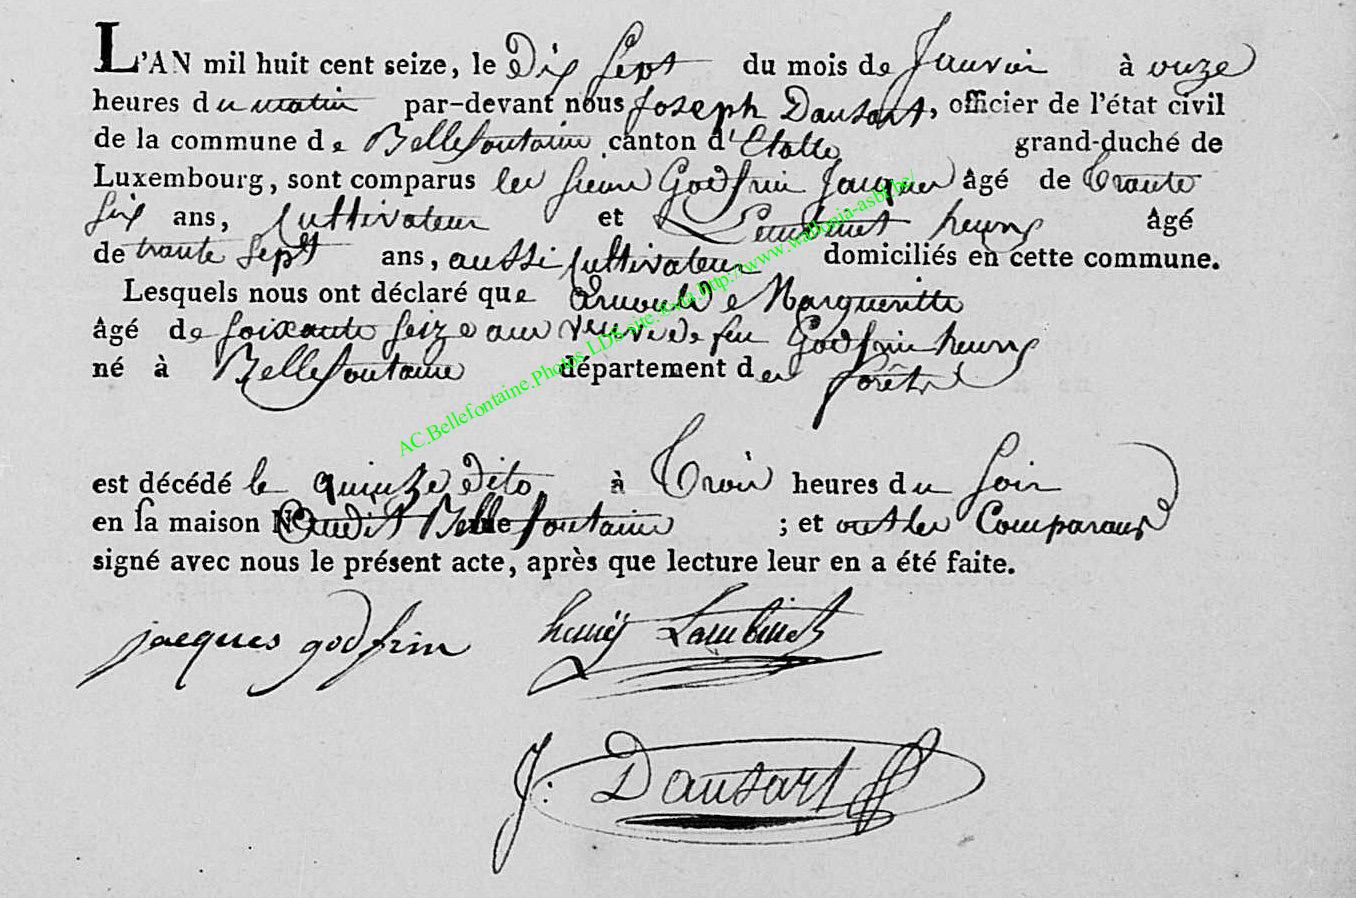 L'AN mil huit cent seize, le Dix Sept du mois de Janvier à onze
heures du matin par-devant nous Joseph Dausart, officier de l'état civil
de la commune de Bellefontaine canton d'Etalle grand-duché de
Luxembourg, sont comparus les sieurs Godfrin Jacques âgé de trante
six ans, Cultivateur et Lambinet henry âgé
de trante sept ans, aussi Cultivateur domiciliés en cette commune.
Lesquels nous ont déclaré que Margueritte
âgé de soixante seize ans veuve de feu Godfrin henry
né à Bellefontaine département des forêts
est décédé le quinze dito à trois heures du soir
en sa maison audit Bellefontaine ; et ont les Comparans
signé avec nous le présent acte, après que lecture leur en a été faite.
jacques godfrin henry Lambinet
J: Dausart
AC.Bellefontaine.Photos.LDS.site.
http://www.wallonia-asbl.be/